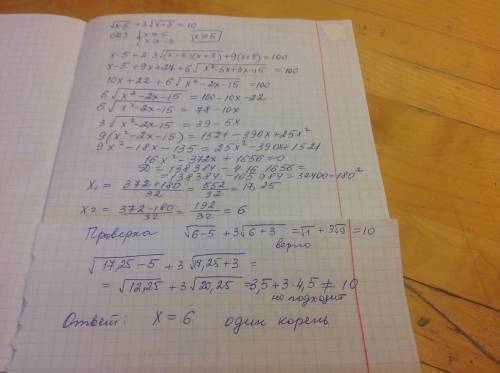 √x-5 + 3√x+3 = 10
ОДЗ { x ≥ 5 x ≥ -3 | x ≥ 5
x-5 + 2·3√(x-5)(x+3) + 9(x+3) = 100
x-5 + 9x + 27 + 6√x²-5x+3x-15 = 100
10x + 22 + 6√x²-2x-15 = 100
6√x²-2x-15 = 100-10x-22
6√x²-2x-15 = 78-10x
3√x²-2x-15 = 39-5x
9(x²-2x-15) = 1521-390x+25x²
9x²-18x-135 = 25x²-390x+1521
16x²-372x+1656=0
D = 138384 - 4·16·1656 =
= 138384 - 105984 = 32400 = 180²
x₁ = 372+180/32 = 552/32 = 17,25
x₂ = 372-180/32 = 192/32 = 6
Проверка √6-5 + 3√6+3 = √1 + 3√9 = 10
верно
√17,25-5 + 3√17,25+3 =
= √12,25 + 3√20,25 = 3,5+3·4,5 ≠ 10
не подходит
Ответ: x = 6 один корень